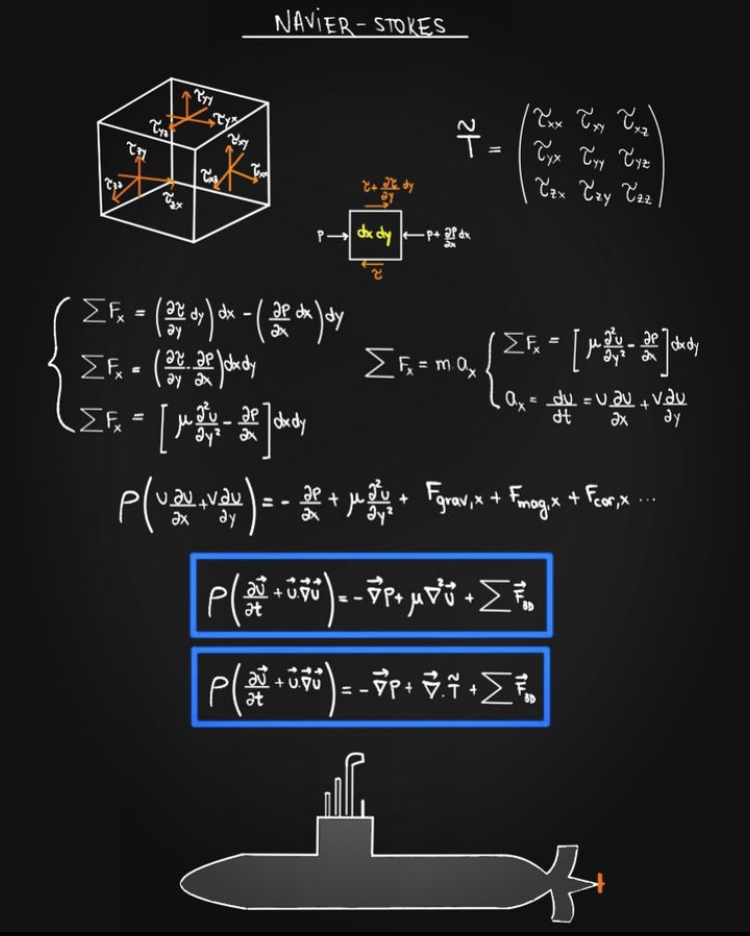 NAVIER-STOKES
τyy
τyx
τyz
τxy
τxz
τxx
τzy
τzz
τzx
T̃ = (τxx τxy τxz
τyx τyy τyz
τzx τzy τzz)
τ + ∂τ/∂y dy
P → dx dy ← P + ∂P/∂x dx
τ
∑Fx = (∂τ/∂y dy) dx - (∂P/∂x dx) dy
∑Fx = (∂τ/∂y · ∂P/∂x) dx dy
∑Fx = [μ ∂²u/∂y² - ∂P/∂x] dx dy
∑Fx = m.ax
∑Fx = [μ ∂²u/∂y² - ∂P/∂x] dx dy
ax = du/dt = u ∂u/∂x + v ∂u/∂y
ρ(u ∂u/∂x + v ∂u/∂y) = - ∂P/∂x + μ ∂²u/∂y² + Fgrav,x + Fmag,x + Fcor,x ...
ρ(∂u⃗/∂t + u⃗.∇⃗u⃗) = -∇⃗P + μ∇⃗²u⃗ + ∑F⃗3D
ρ(∂u⃗/∂t + u⃗.∇⃗u⃗) = -∇⃗P + ∇⃗.T̃ + ∑F⃗3D